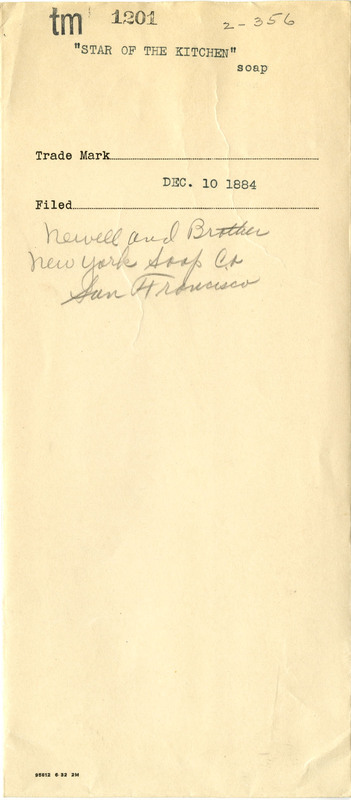 tm 1201 2-356
"STAR OF THE KITCHEN"
soap
Trade Mark
DEC. 10 1884
Filed
Newell and Brother
New York Soap Co
San Francisco
95812 6-32 2M